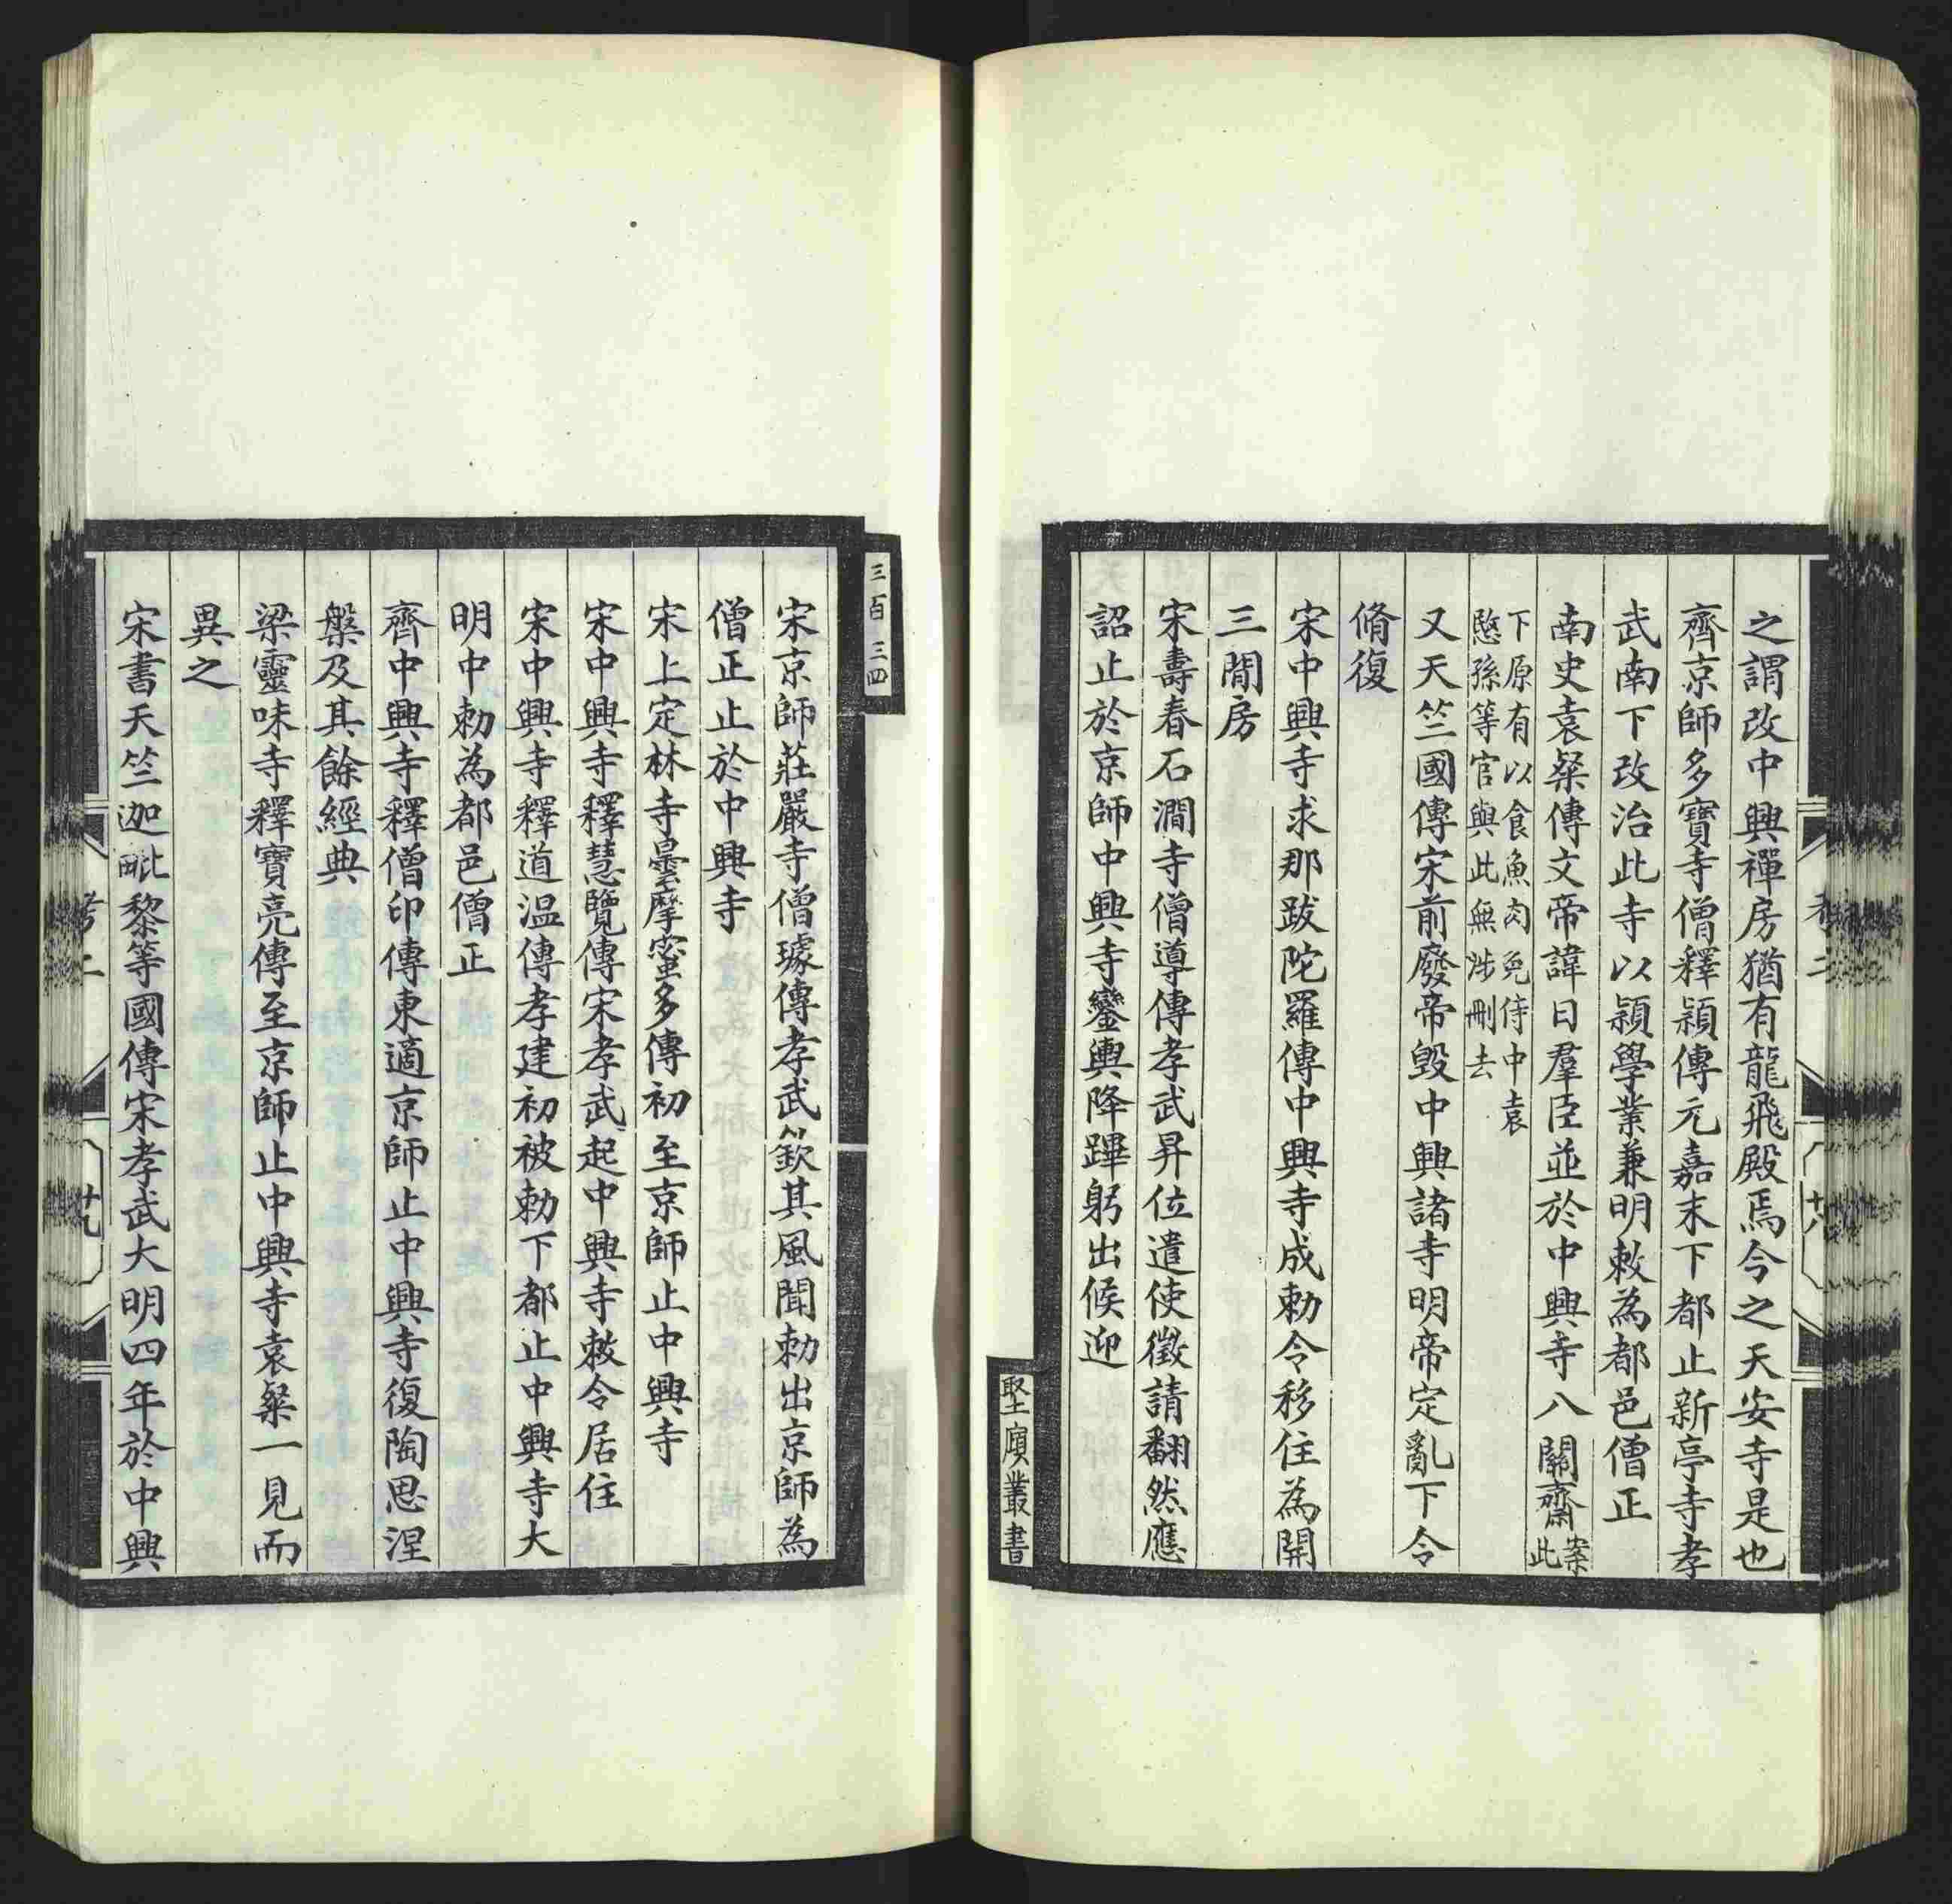 之謂改中興禪房猶有龍飛殿焉今之天安寺是也
齊京師多寶寺僧釋穎傳元嘉末下都止新亭寺孝
武南下改治此寺以穎學業兼明敕為都邑僧正
南史袁粲傳文帝諱日羣臣並於中興寺八關齋案此
下原有以食魚肉免侍中袁
愍孫等官與此無涉刪去
又天竺國傳宋前廢帝毁中興諸寺明帝定亂下令
脩復
宋中興寺求那跋陀羅傳中興寺成勅令移住為開
三閒房
宋壽春石澗寺僧導傳孝武昇位遣使徵請翻然應
詔止於京師中興寺鑾輿降蹕躬出候迎
卷二
十八
堅頎叢書
三百三四
宋京師莊嚴寺僧璩傳孝武欽其風聞勅出京師為
僧正止於中興寺
宋上定林寺曇摩蜜多傳初至京師止中興寺
宋中興寺釋慧覽傳宋孝武起中興寺敕令居住
宋中興寺釋道温傳孝建初被勅下都止中興寺大
明中勅為都邑僧正
齊中興寺釋僧印傳東適京師止中興寺復陶思涅
槃及其餘經典
梁靈味寺釋寶亮傳至京師止中興寺袁粲一見而
異之
宋書天竺迦毗黎等國傳宋孝武大明四年於中興